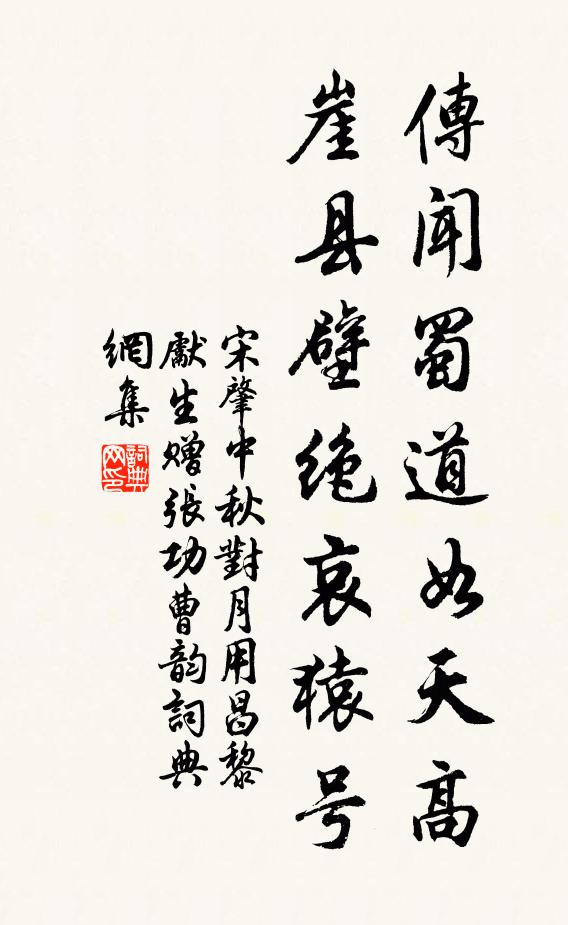 傳聞蜀道如天高
崖县壁绝哀猿号
宋肇中秋對月用昌黎
獻生赠張功曹韵詞典
網集
詞典网印